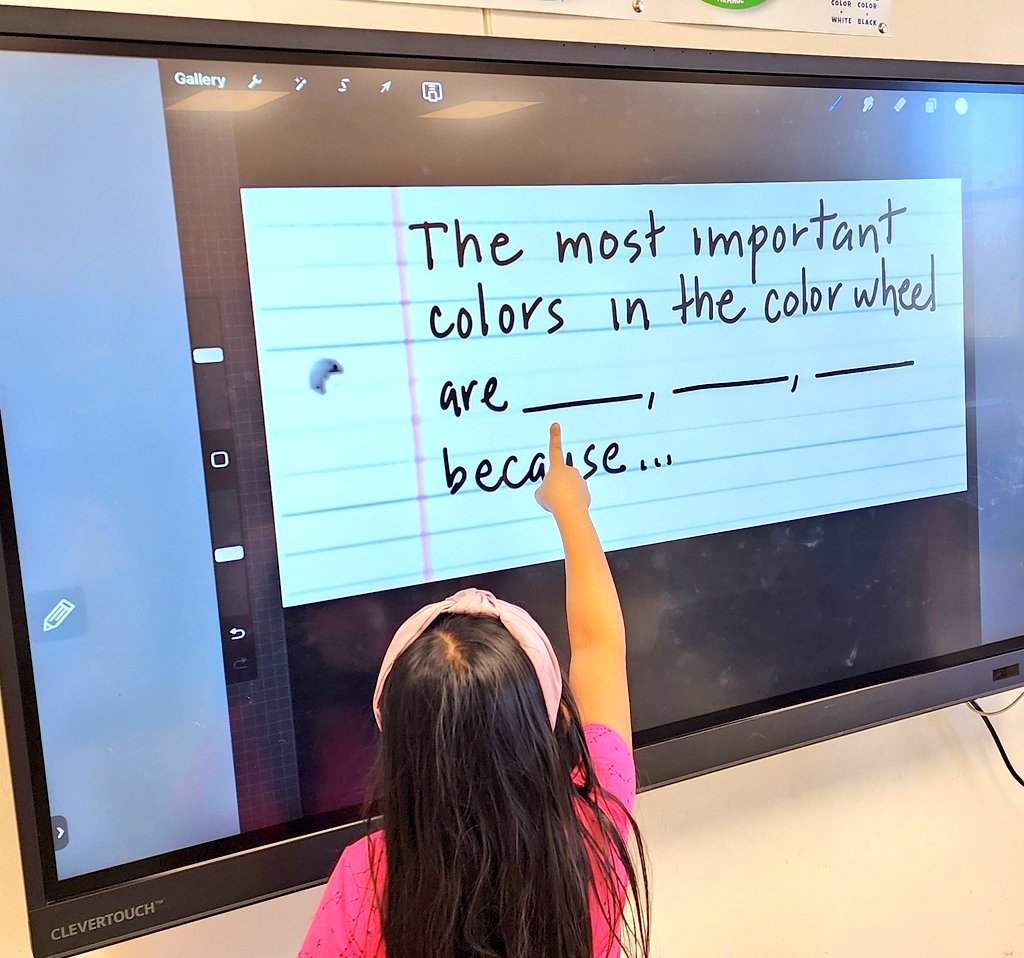 COLOR COLOR
WHITE BLACK
Gallery
The most important
colors in the color wheel
are ______, ______, ______
because...
CLEVERTOUCH™